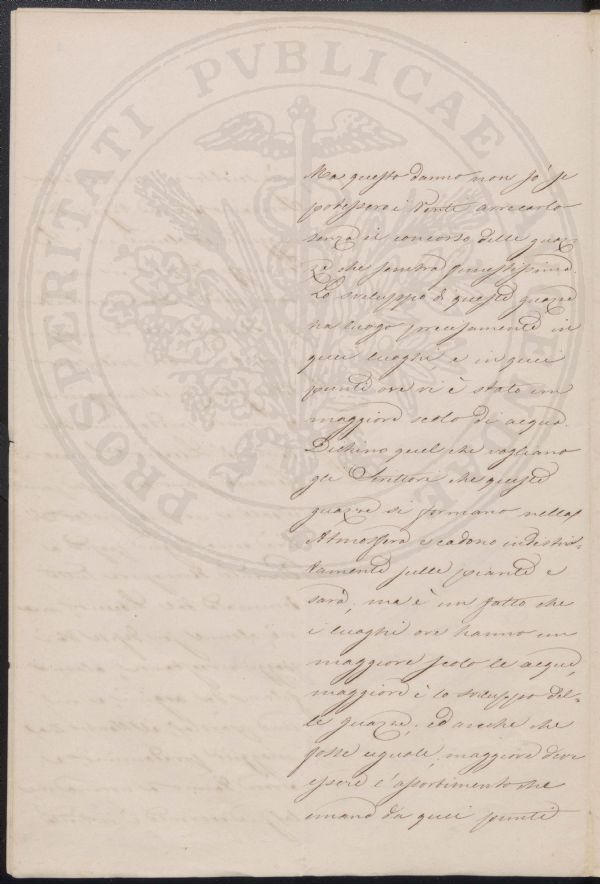 PROSPERITATI PVBLICAE
Ma questo danno non sò se
potessero i venti arrecarlo
senza il concorso delle guaz-
ze che sembra funestissima.
Lo sviluppo di queste guazze
ha luogo precisamente in
quei luoghi e in quei
punti ove vi è stato un
maggiore scolo di acqua.
Dichino quel che vogliano
gli Scrittori che queste
guazze si formano nella
Atmosfera e cadono indistin-
tamente sulle piante e
sarà, ma è un fatto che
i luoghi ove hanno un
maggiore scolo le acque,
maggiore è lo sviluppo del-
le guazze, ed anche che
fosse eguale, maggiore deve
essere l'assorbimento che
emana da quei punti